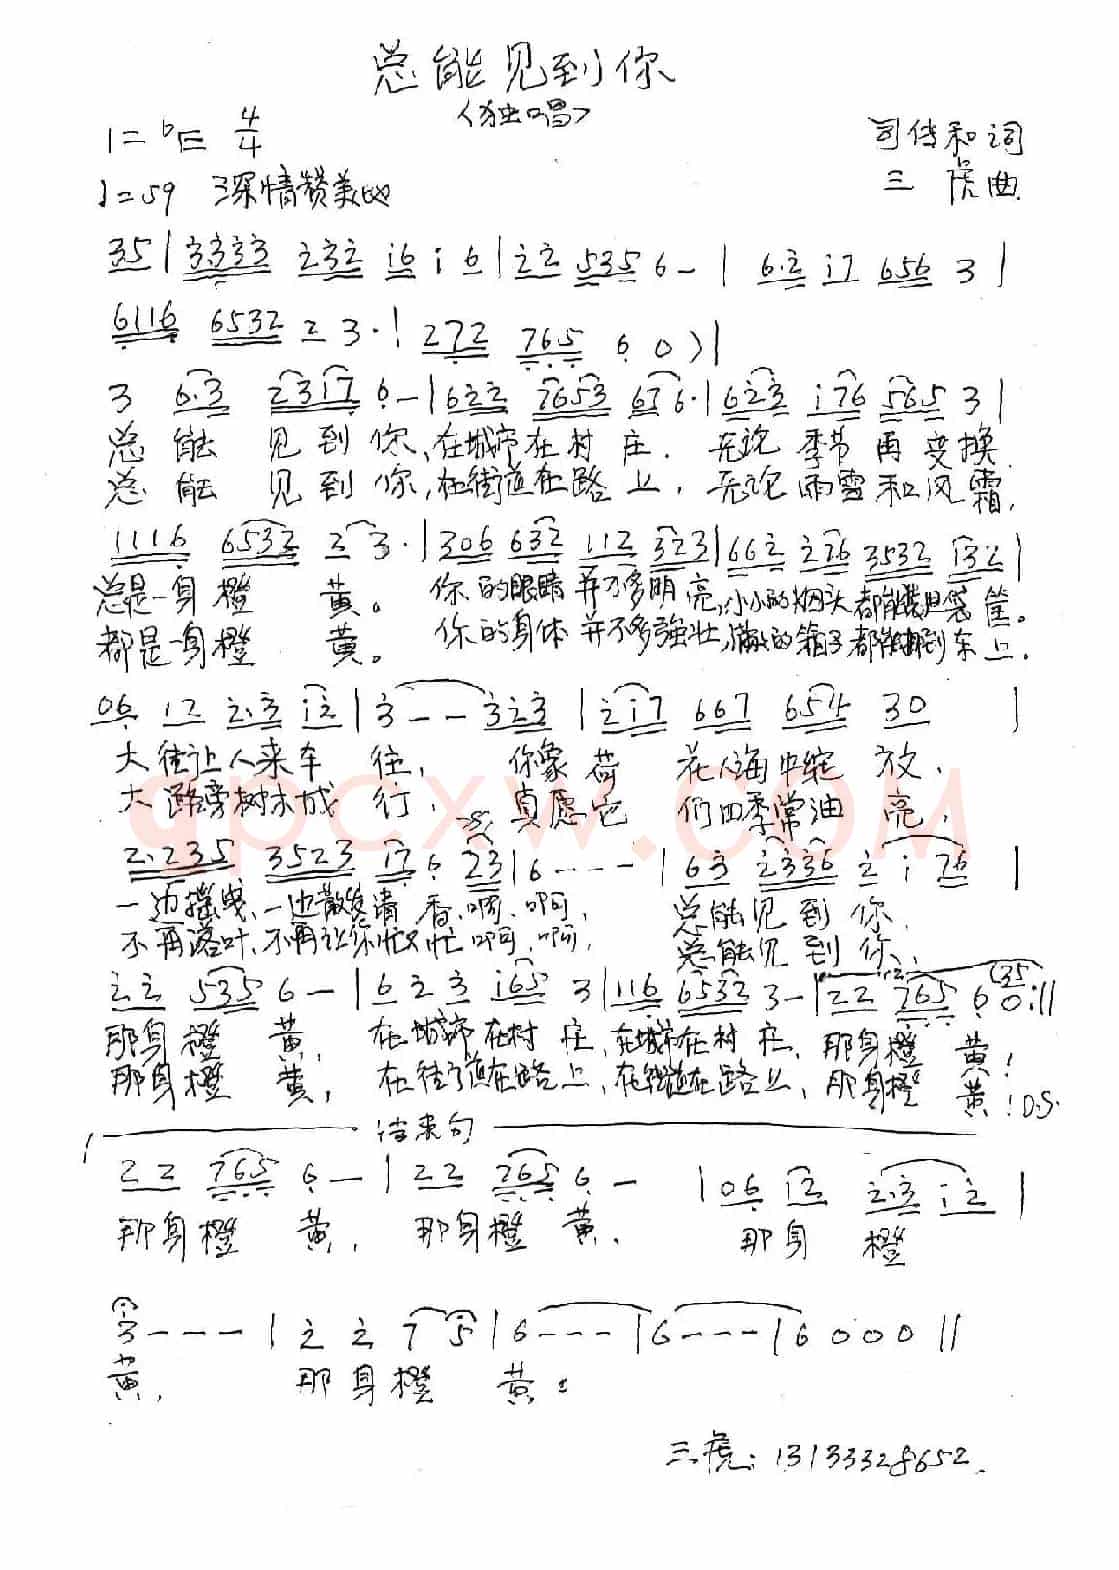 总能见到你
〈独唱〉
1=♭E 4/4
司传和词
♩=59 深情赞美地
三虎曲
35|3333 232 i6 i 6|22 535 6-|6·2 i7 656 3|
6116 6532 2 3·|272 765 6 0)|
3 6·3 23i7 6-|622 7653 676·|623 i76 565 3|
总能见到你,在城市在村庄.无论季节再变换.
总能见到你,在街道在路上,无论雨雪和风霜,
1116 6532 2 3·|306 632 112 323|662 276 3532 132|
总是一身橙黄。你的眼睛并不多明亮,小小的烟头都能装进筐。
都是一身橙黄。你的身体并不多強壮,满的箱子都能搬到车上.
06 12 2·3 i2|3--323|2i7 667 654 30|
大街让人来车往,你象荷花人海中绽放,
大路旁树木成行,真愿它们四季常油亮,
2·235 3523 i7 6 23|6---|63 2336 2 i 76|
一边摇曳、一边散发清香.啊.啊,总能见到你
不再落叶、不再让你忙又忙啊,啊,总能见到你,
22 535 6-|6 2 3 i65 3|116 6532 3-|22 765 6 0(35:||
那身橙黄,在城市在村庄,在城市在村庄、那身橙黄!
那身橙黄,在街道在路上、在街道在路上,那身橙黄!D.S.
结束句
22 765 6-|22 765 6-|06 i2 2·3 i2|
那身橙黄,那身橙黄.那身橙
3---|2 2 7 5|6---|6---|6000||
黄,那身橙黄!
三虎:13133328652
qpcxw.com